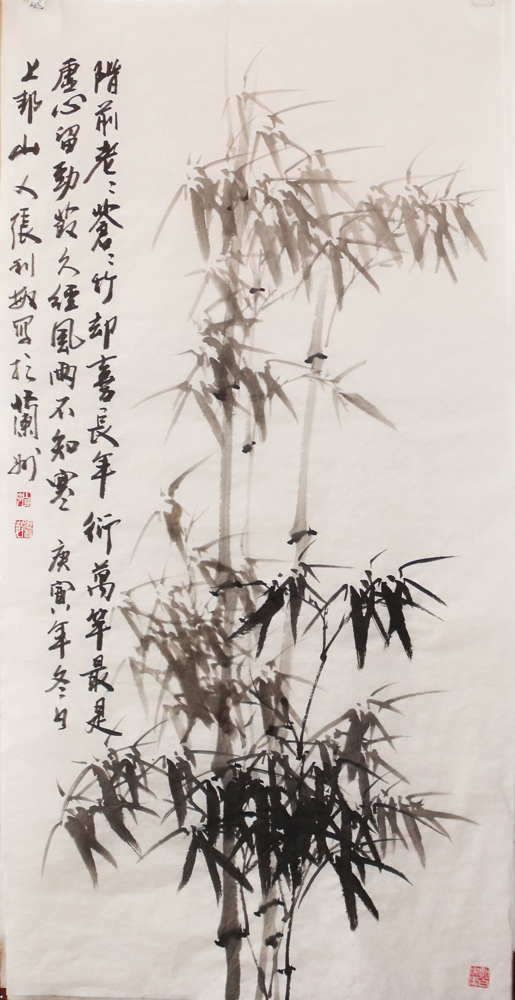 階前老〻蒼〻竹却喜長年衍萬竿最是
虛心留勁節久經風雨不知寒 庚寅年冬月
上邽山人張利敏写於蘭州